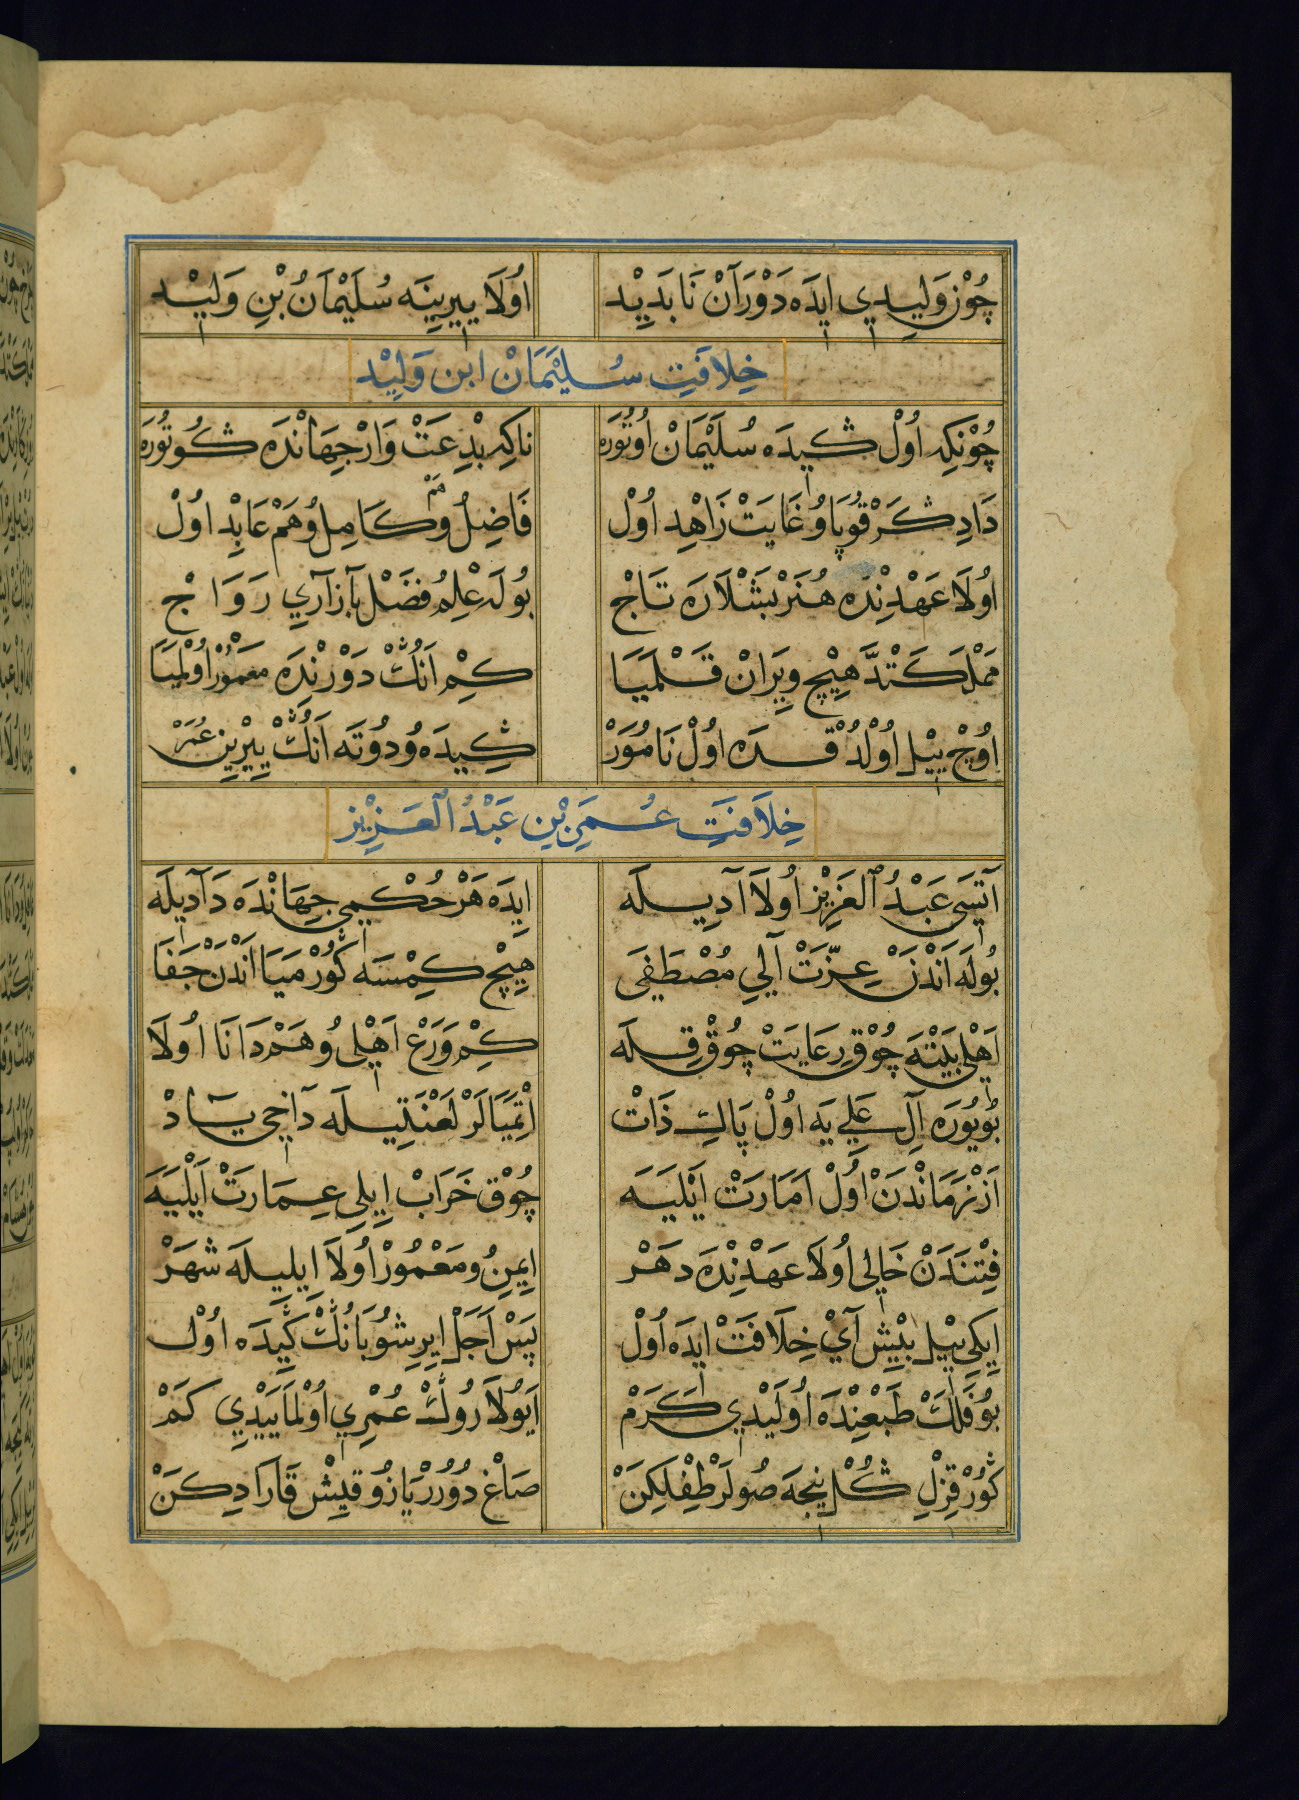 چُوْن وَلِيدِي ايدَه دَوْرَانْ نَا بَدِيْد اُولَا يِيرِينَه سُلَيْمَانُ بْنِ وَلِيْد
خِلافَتِ سُلَيْمَانْ ابن وَلِيْد
چُوْنكِه اُوْل كِيدَه سُلَيْمَانْ اُوتُورَه تاكِه بْدِعَتْ وَارْ جِهَانْدَه كُوتُورَه
دَادِ كَرْ قُوپَا وُ غَايَتْ زَاهْدِ اُوْل فَاضِلُ وُ هَمْ كَامِل وُ هَمْ عَابِدْ اوُلْ
اُولَا عَهْدِنْدَه هُنَرْ بَشْلَارَه تَاجْ بُولَه عْلِمُ فَضْل بَازَارِي رَوَاجْ
مَمْلَكَتْدَه هِيْچ وِيرَانْ قَلْمَيَا كِمْ اَنُكْ دَوْرِنْدَه مَعْمُوْر اُولْمَيَا
اُوْچ يِيْل اُوْلدُقْدَه اُوْل نَامُوَرْ كِيدَه وُ دُوتَه اَنُكْ يِيْرِيْن عُمَرْ
خِلَافَتِ عُمَرِ بْنِ عَبْدُ الْعَزِيْز
آتَسَي عَبْدُ الْعَزِيْز اُولَا آدِيلَه ايِدَه هَرْ حُكْمِي جِهَانْدَه دَادِيلَه
بُولَه اَنْدَنْ عِزّتْ آلِ مُصْطَفَى هِيْچ كِمْسَه كُوْرمَيَا اَنْدَنْ جَفَا
اَهْلِ بَيْتَه چُوْق رِعَايَتْ چُوْق قِلَه كِمْ وَرَعْ اَهْلِ وُ هَمْ دَانَا اُولَا
بُويُورَه آلِ عَلِي يَه اُوْل پَاكِ ذَاتْ اتْمَيَالَرْ لَعْنَتِيلَه دَاخِي يَادْ
اَزْ زَمَانْدَنْ اُوْل اَمَارَتْ اَيْليَه چُوْق خَرَابْ ايِلي عِمَارَتْ اَيْليَه
فِتْنَدَنْ خَالِي اُولَا عَهْدِنْدَه دَهْر ايمِنُ وَمَعْمُوْر اُولَا ايليلَه شَهَرْ
ايكِي يِيْل بِيْش آيْ خِلَافَتْ ايدَه اُوْل پَسْ اَجَلْ ايرِشُوبَانُكْ كِيدَه اوُلْ
بُو فَلَكْ طَبْعِنْدَه اُولَيْدِي كَرَمْ اَيُولَارُوكْ عُمْرِي اُوْلمَايَيْدِي كَمْ
كُوْر قِزِلْ كُل نِيجَه صُولَرْ طِفْلكَنْ صَاغ دُورُرْ يَازُ وُ قِيْش قَارَا دِكَنْ